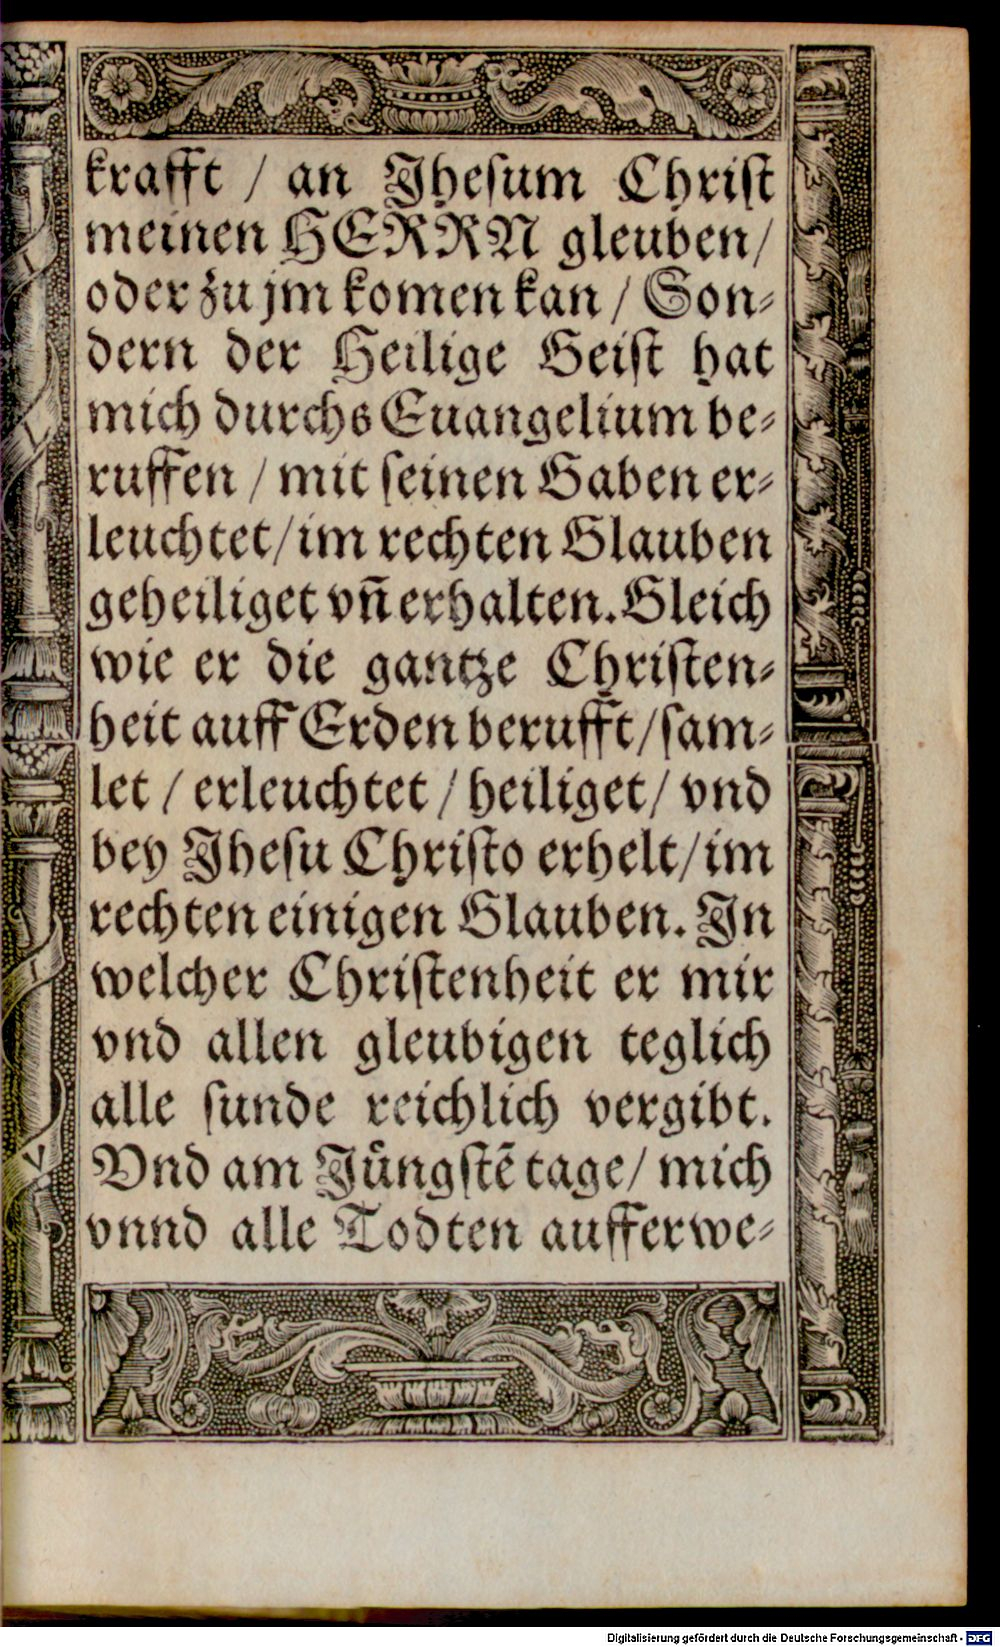 krafft / an Jhesum Christ
meinen HERRN gleuben/
oder zu jm komen kan / Son⸗
dern der Heilige Geist hat
mich durchs Euangelium be⸗
ruffen / mit seinen Gaben er⸗
leuchtet/ im rechten Glauben
geheiliget vn̄ erhalten. Gleich
wie er die gantze Christen⸗
heit auff Erden berufft/ sam⸗
let / erleuchtet / heiliget/ vnd
bey Jhesu Christo erhelt/ im
rechten einigen Glauben. Jn
welcher Christenheit er mir
vnd allen gleubigen teglich
alle sunde reichlich vergibt.
Vnd am Jüngstē tage/ mich
vnnd alle Todten aufferwe⸗
Digitalisierung gefördert durch die Deutsche Forschungsgemeinschaft - DFG